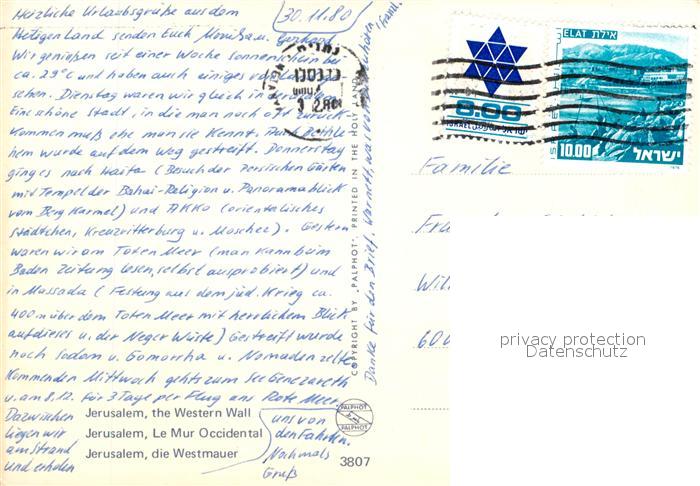 Herzliche Urlaubsgrüße aus dem
30.11.80
Heiligen Land senden Euch Monika u. Gerhard
Wir genießen seit einer Woche Sonnenschein bei
ca. 29°C und haben auch einiges vom Land ge-
sehen. Dienstag waren wir gleich in Jerusalem.
Eine schöne Stadt, in die man noch oft zurück-
kommen muß ehe man sie kennt. Auch Bethle-
hem wurde auf dem Weg gestreift. Donnerstag
ging es nach Haifa (Besuch der Persischen Gärten
mit Tempel der Bahai-Religion u. Panoramablick
vom Berg Karmel) und AKKO (orientalisches
Städtchen, Kreuzritterburg u. Moschee). Gestern
waren wir am Toten Meer (man kann beim
Baden Zeitung lesen, selbst ausprobiert) und
in Massada (Festung aus dem jüd. Krieg ca.
400 m über dem Toten Meer mit herrlichem Blick
auf dieses u. der Negev Wüste) Gestreift wurde
noch Sodom u. Gomorrha u. Nomadenzelte
Kommenden Mittwoch gehts zum See Genezareth
u. am 8.12. für 3 Tage per Flug ans Rote Meer
Dazwischen
liegen wir
am Strand
und erholen
uns von
den Fahrten.
Nochmals
Gruß
Jerusalem, the Western Wall
Jerusalem, Le Mur Occidental
Jerusalem, die Westmauer
PALPHOT
3807
COPYRIGHT BY "PALPHOT", PRINTED IN THE HOLY LAND
Danke für den Brief.
8.00
ISRAEL ישראל
ELAT אילת
10.00
ישראל
Familie
privacy protection
Datenschutz